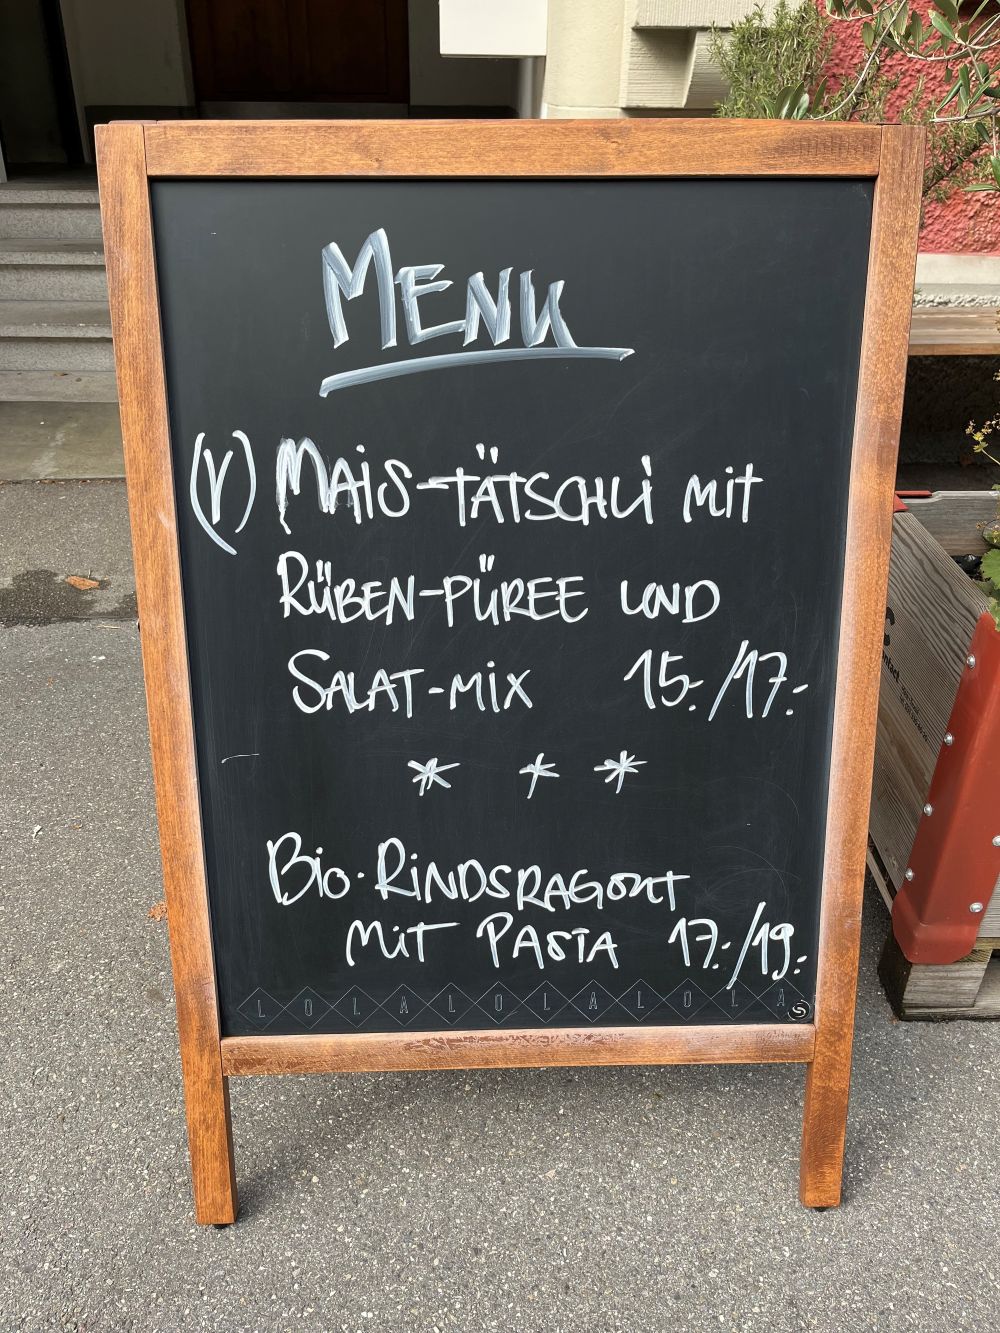 MENU
(V) MAIS-TÄTSCHLI MIT
RÜBEN-PÜREE UND
SALAT-MIX 15.-/17.-
* * *
BIO-RINDSRAGOUT
MIT PASTA 17.-/19.-
LOLALOLALOLA